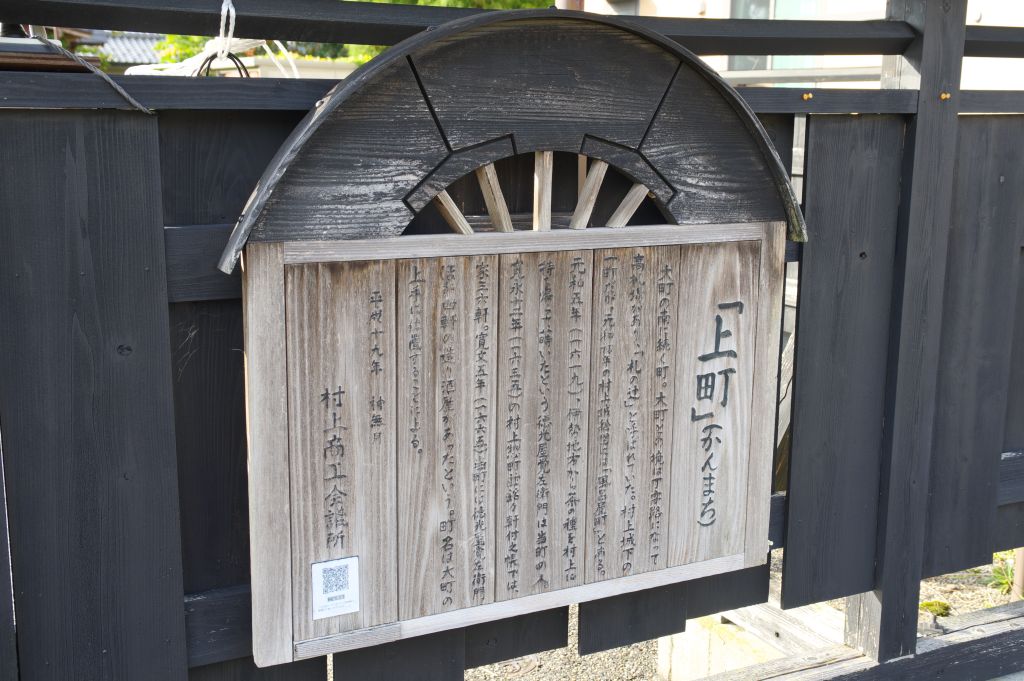 「上町」(かんまち)
大町の南に続く町。大町との境は丁字路になって
高札場があり、「札の辻」と呼ばれていた。村上城下の
町で、元和
元和五年(一六一九)、伊勢地方から茶の種を村上に
持ち帰って蒔いたという徳光屋覚左衛門は当町の人。
寛永十二年(一六三五)の村上惣町並銘々軒付之帳では、
家三六軒。寛文五年(一六六五)当町には徳光屋覚左衛門
など四軒の造り酒屋があったという。町名は大町の
上手に位置することによる。
平成十九年 神無月
村上商工会議所